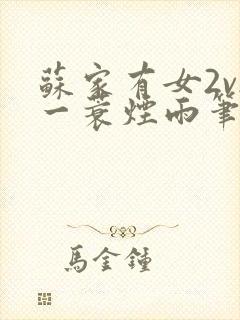 蘇家有女2v
一蓑煙雨筆
馬金鍾